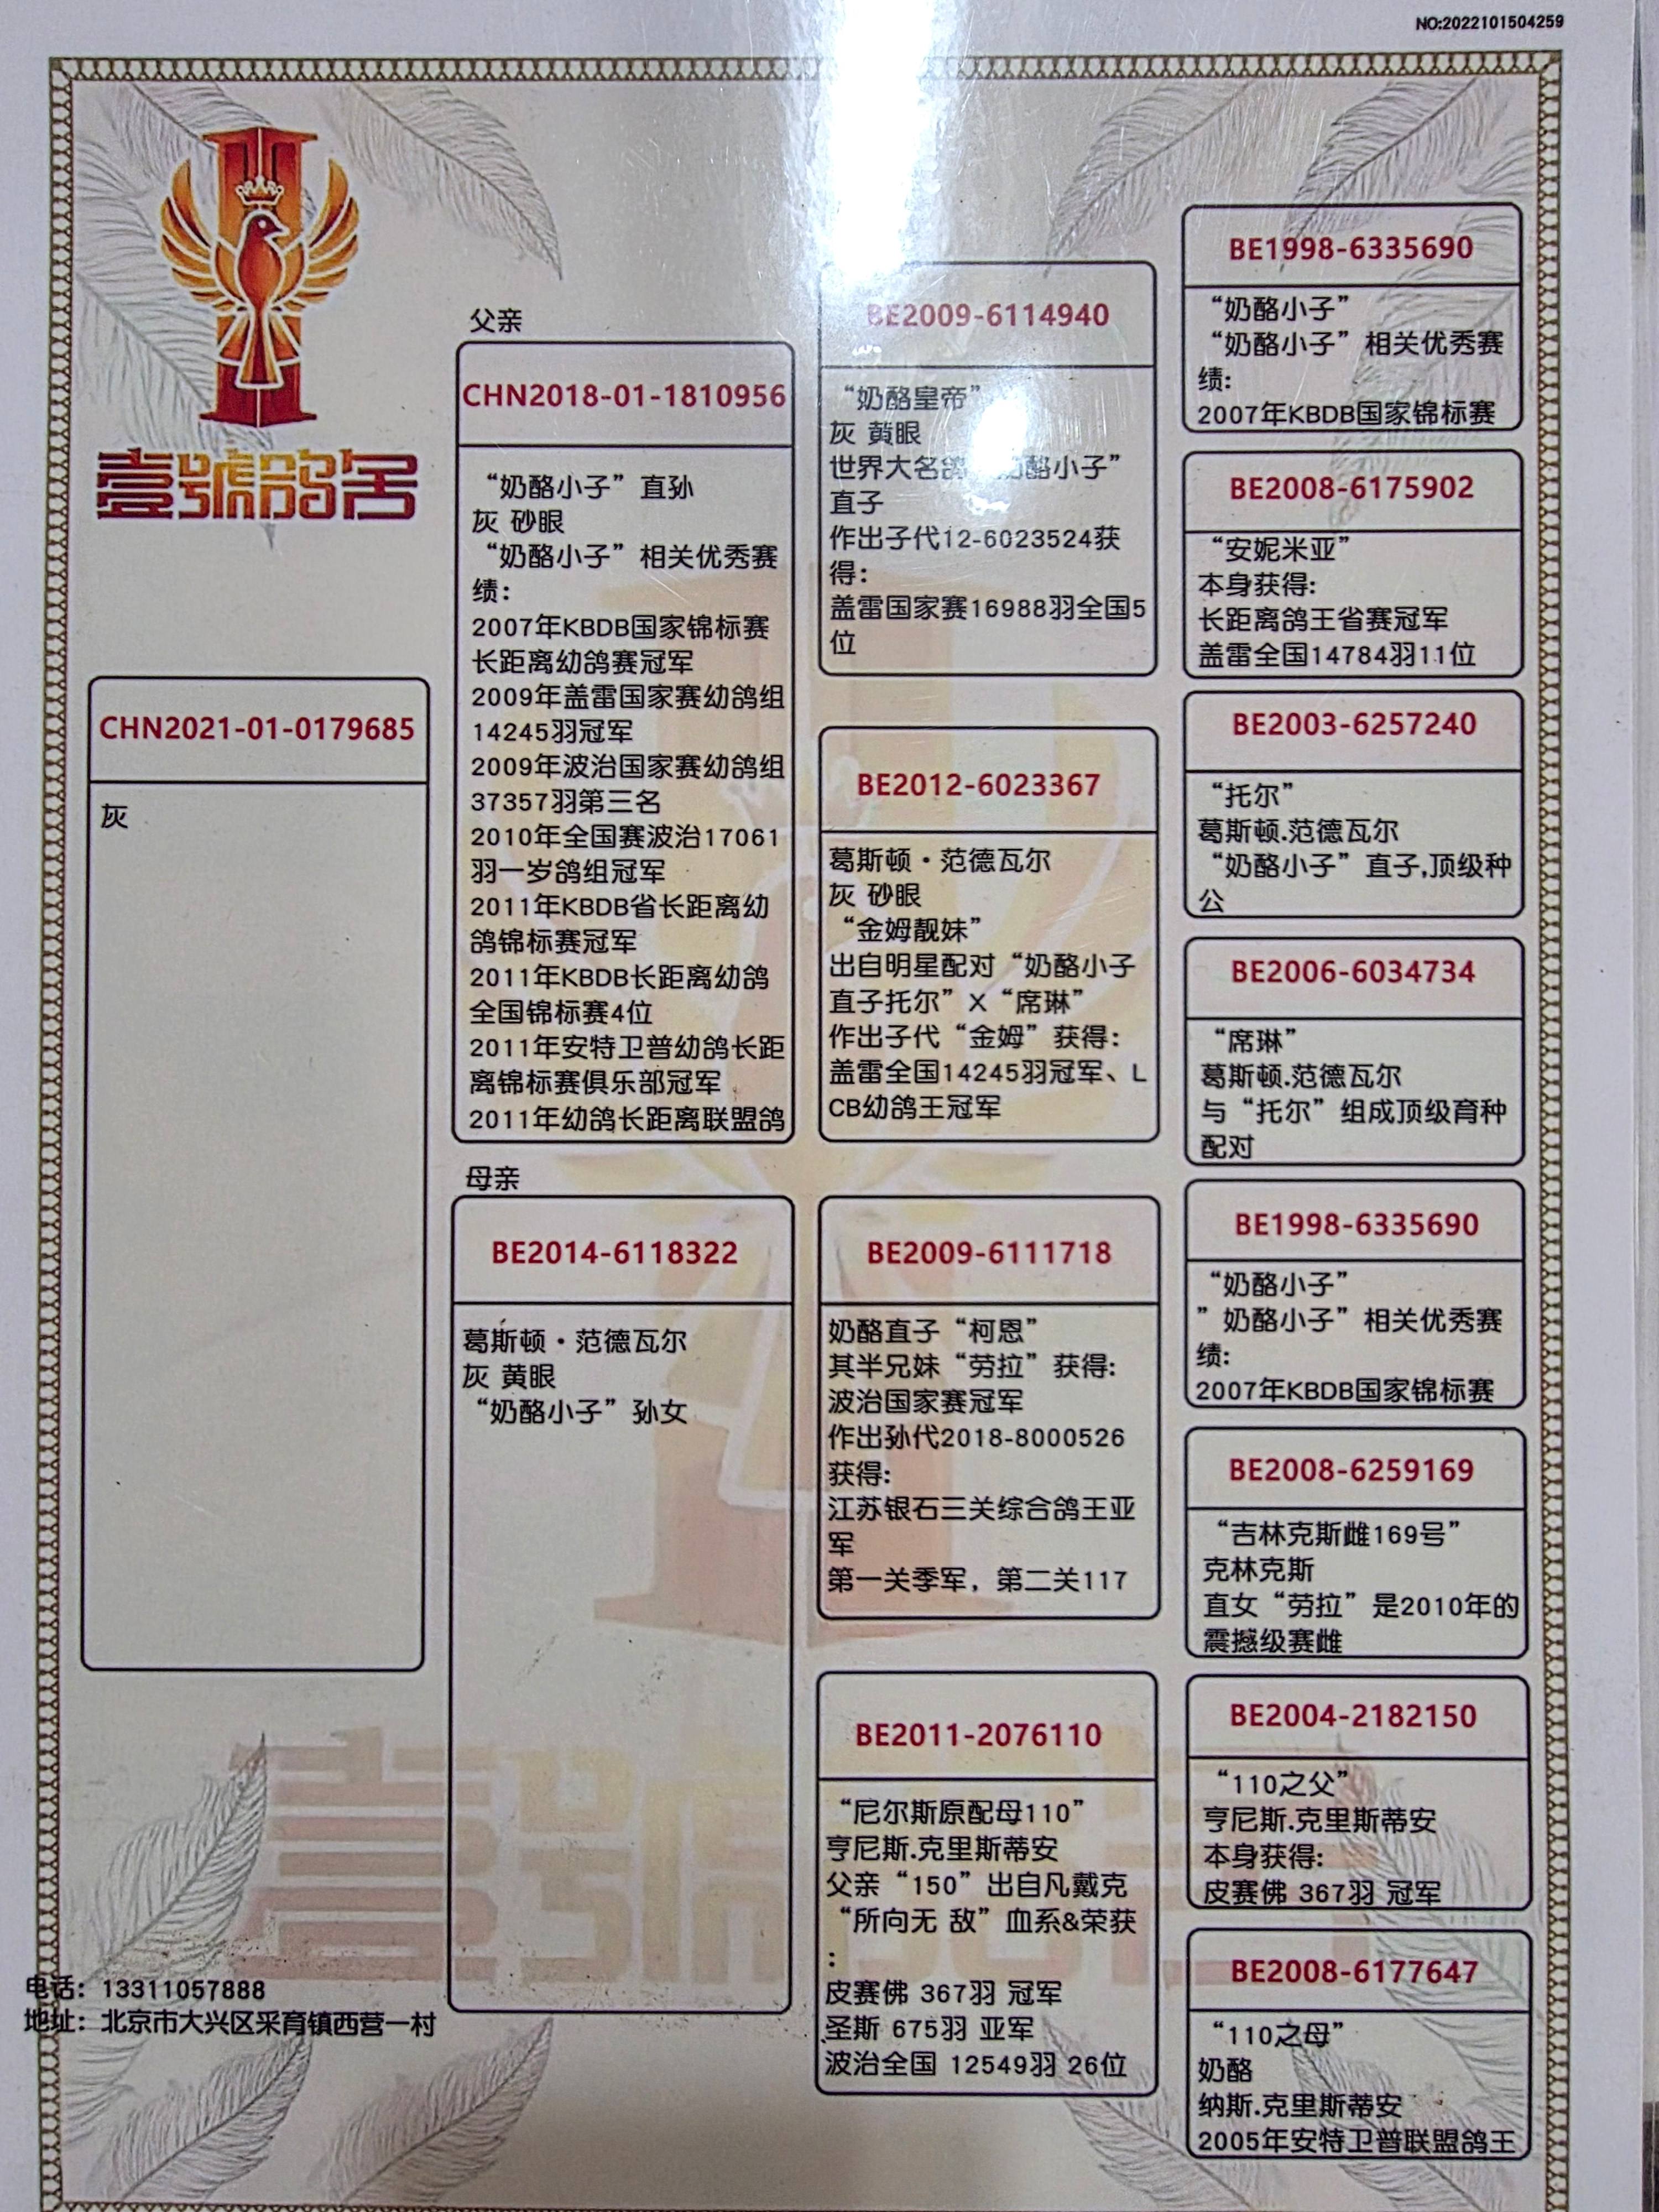 NO:2022101504259
壹號鸽舍
CHN2021-01-0179685
灰
父亲
CHN2018-01-1810956
“奶酪小子”直孙
灰 砂眼
“奶酪小子”相关优秀赛
绩：
2007年KBDB国家锦标赛
长距离幼鸽赛冠军
2009年盖雷国家赛幼鸽组
14245羽冠军
2009年波治国家赛幼鸽组
37357羽第三名
2010年全国赛波治17061
羽一岁鸽组冠军
2011年KBDB省长距离幼
鸽锦标赛冠军
2011年KBDB长距离幼鸽
全国锦标赛4位
2011年安特卫普幼鸽长距
离锦标赛俱乐部冠军
2011年幼鸽长距离联盟鸽
母亲
BE2014-6118322
葛斯顿·范德瓦尔
灰 黄眼
“奶酪小子”孙女
BE2009-6114940
“奶酪皇帝”
灰 黄眼
世界大名鸽 奶酪小子”
直子
作出子代12-6023524获
得：
盖雷国家赛16988羽全国5
位
BE2012-6023367
葛斯顿·范德瓦尔
灰 砂眼
“金姆靓妹”
出自明星配对“奶酪小子
直子托尔”X“席琳”
作出子代“金姆”获得：
盖雷全国14245羽冠军、L
CB幼鸽王冠军
BE2009-6111718
奶酪直子“柯恩”
其半兄妹“劳拉”获得:
波治国家赛冠军
作出孙代2018-8000526
获得:
江苏银石三关综合鸽王亚
军
第一关季军，第二关117
BE2011-2076110
“尼尔斯原配母110”
亨尼斯.克里斯蒂安
父亲“150”出自凡戴克
“所向无 敌”血系&荣获
：
皮赛佛 367羽 冠军
圣斯 675羽 亚军
波治全国 12549羽 26位
BE1998-6335690
“奶酪小子”
“奶酪小子”相关优秀赛
绩:
2007年KBDB国家锦标赛
BE2008-6175902
“安妮米亚”
本身获得:
长距离鸽王省赛冠军
盖雷全国14784羽11位
BE2003-6257240
“托尔”
葛斯顿.范德瓦尔
“奶酪小子”直子,顶级种
公
BE2006-6034734
“席琳”
葛斯顿.范德瓦尔
与“托尔”组成顶级育种
配对
BE1998-6335690
“奶酪小子”
”奶酪小子”相关优秀赛
绩:
2007年KBDB国家锦标赛
BE2008-6259169
“吉林克斯雌169号”
克林克斯
直女“劳拉”是2010年的
震撼级赛雌
BE2004-2182150
“110之父”
亨尼斯.克里斯蒂安
本身获得:
皮赛佛 367羽 冠军
BE2008-6177647
“110之母”
奶酪
纳斯.克里斯蒂安
2005年安特卫普联盟鸽王
电话：13311057888
地址：北京市大兴区采育镇西营一村